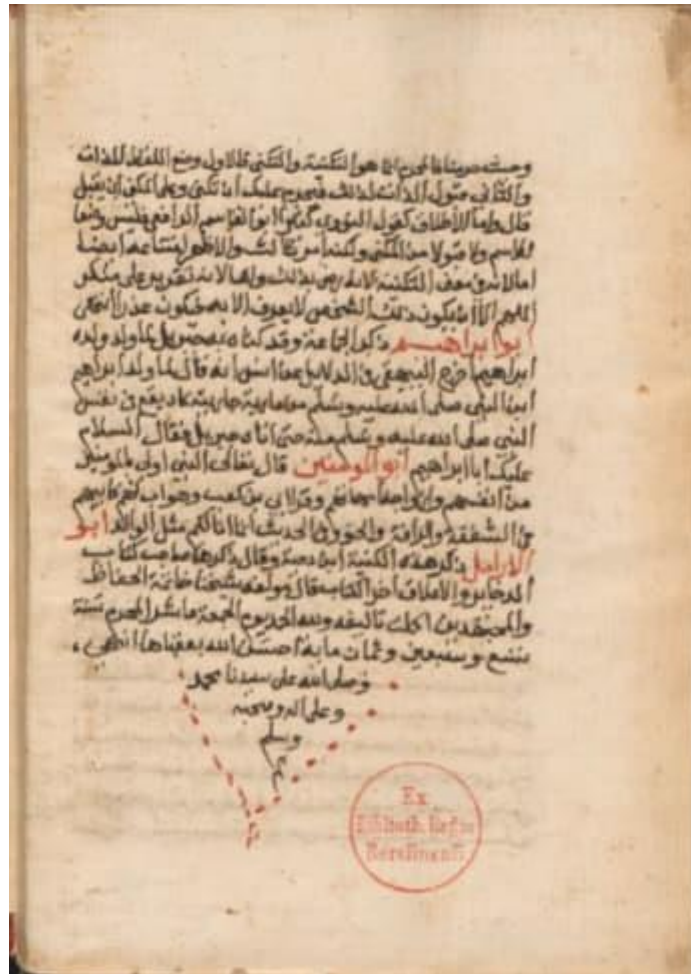 وحينئذ فالمحرم انما هو التكنية والتكنى فالاول وضع اللفظ للذات
والثانى قبول الذات لذلك فيحرم عليك ان تكنى وعلى المكنى ان يقبل
قال واما الاطلاق كقول النووى كتبوا ابو القاسم الرافعى فليس وضعا
للاسم ولا قبولا من المكنى
اللهم الا ان يكون ذلك الشخص لا يعرف الا به فيكون عذرا انتهى
ابو ابراهيم ذكره جماعة وقد كناه به جبريل لما ولد ولده
ابراهيم اخرج البيهقى فى الدلايل عن انس انه قال لما ولد ابراهيم
ابن النبى صلى الله عليه وسلم من مارية جاريته كاد يقع فى نفس
النبى صلى الله عليه وسلم منه حتى اتاه جبريل فقال السلام
عليك ابا ابراهيم ابو المومنين قال تعالى النبى اولى بالمومنين
من انفسهم وازواجه امهاتهم وقرا ابى بن كعب وهو اب لهم
فى الشفقة والرافة والحنو وفى الحديث انما انا لكم مثل الوالد ابو
الارامل ذكر هذه الكنية ابن دحية وقال ذكرها صاحب كتاب
الذخاير والاعلاق اخر الكتاب قال مولفه شيخنا خاتمة الحفاظ
والمجتهدين اكملت تاليفه ولله الحمد يوم الجمعة عاشر المحرم سنة
تسع وسبعين وثمان ماية احسن الله بعقباها انتهى
وصلى الله على سيدنا محمد
وعلى اله وصحبه
وسلم
Ex
Biblioth. Regia
Berolinensi